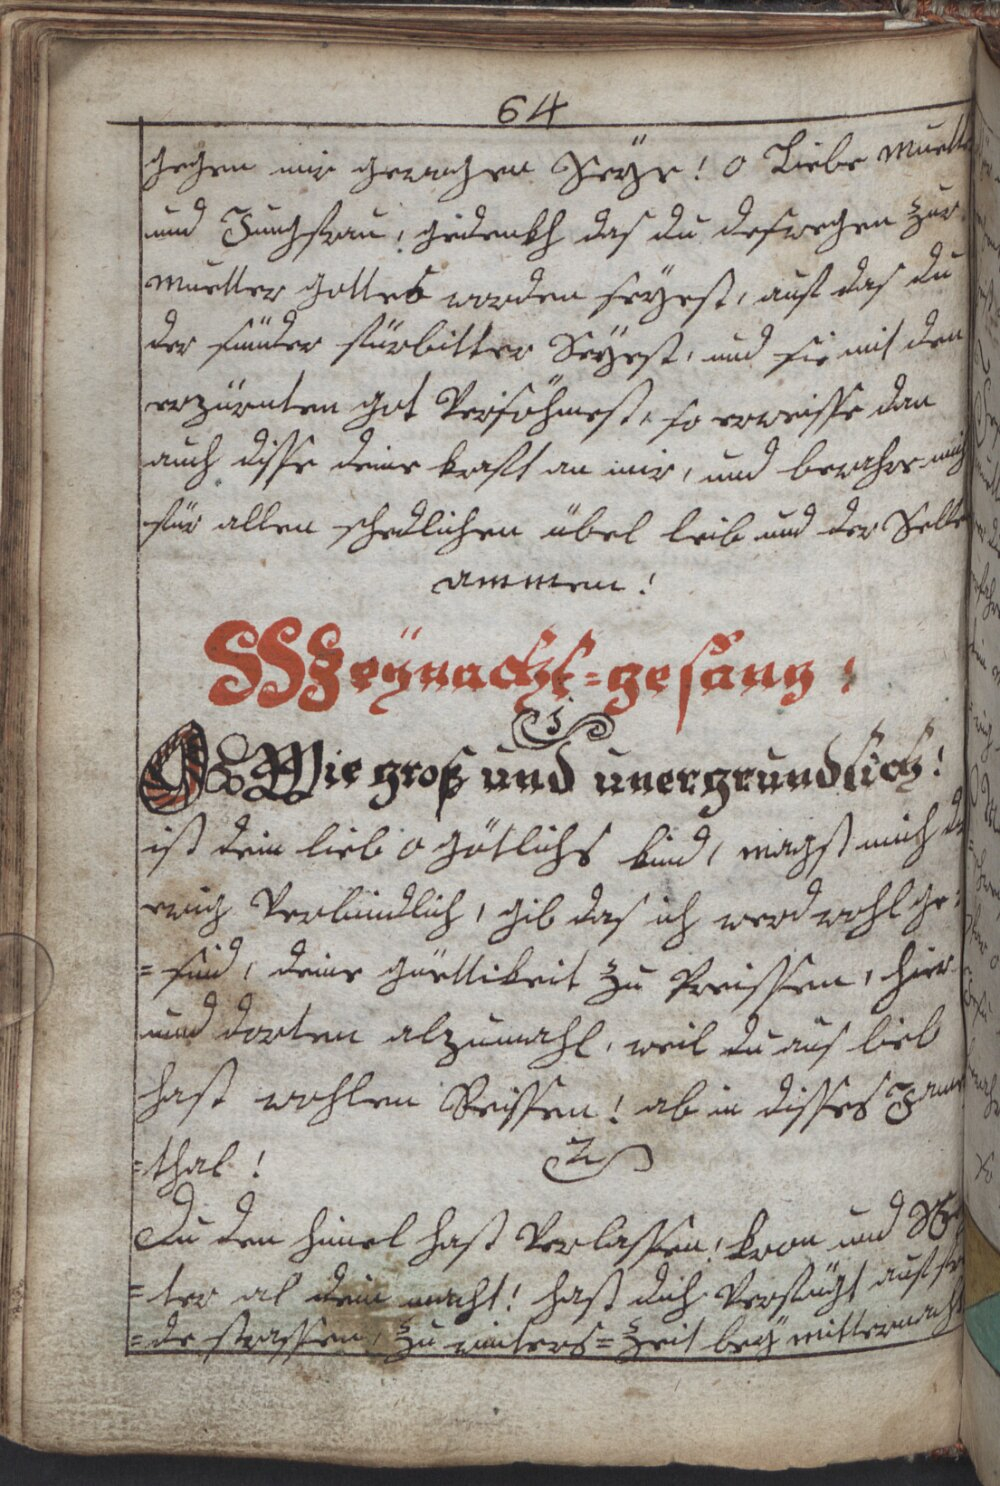 64
gegen mir gewogen Seye! o Liebe muett
und Jungfrau, gedenkh das du deswegen zur
muetter gottes worden seyest, auf das du
der sünder fürbitter Seyest, und sie mit den
erzürnten got Versöhnest, so erweisse dan
auch disse deine kraft an mir, und bewahre mich
für allen schedlichen übel leib und der Selle
ammen!
Weynacht=gesang!
1
O Wie groß und unergrundlich!
ist dein lieb o götlichs kind, magst mich
ewig Verbindlich, gib das ich werd wohl ge=
=sind, deine güettikeit zu Preissen, hier
und dorten alzumahl, weil du aus lieb
hast wohlen Reissen! ab in disses Jamer
=thal!
2
Du den himel hast Verlassen, kron und
=ter al dein macht! hast dich Verfügt auf
=de strassen, zu winters=Zeit bey mitternacht